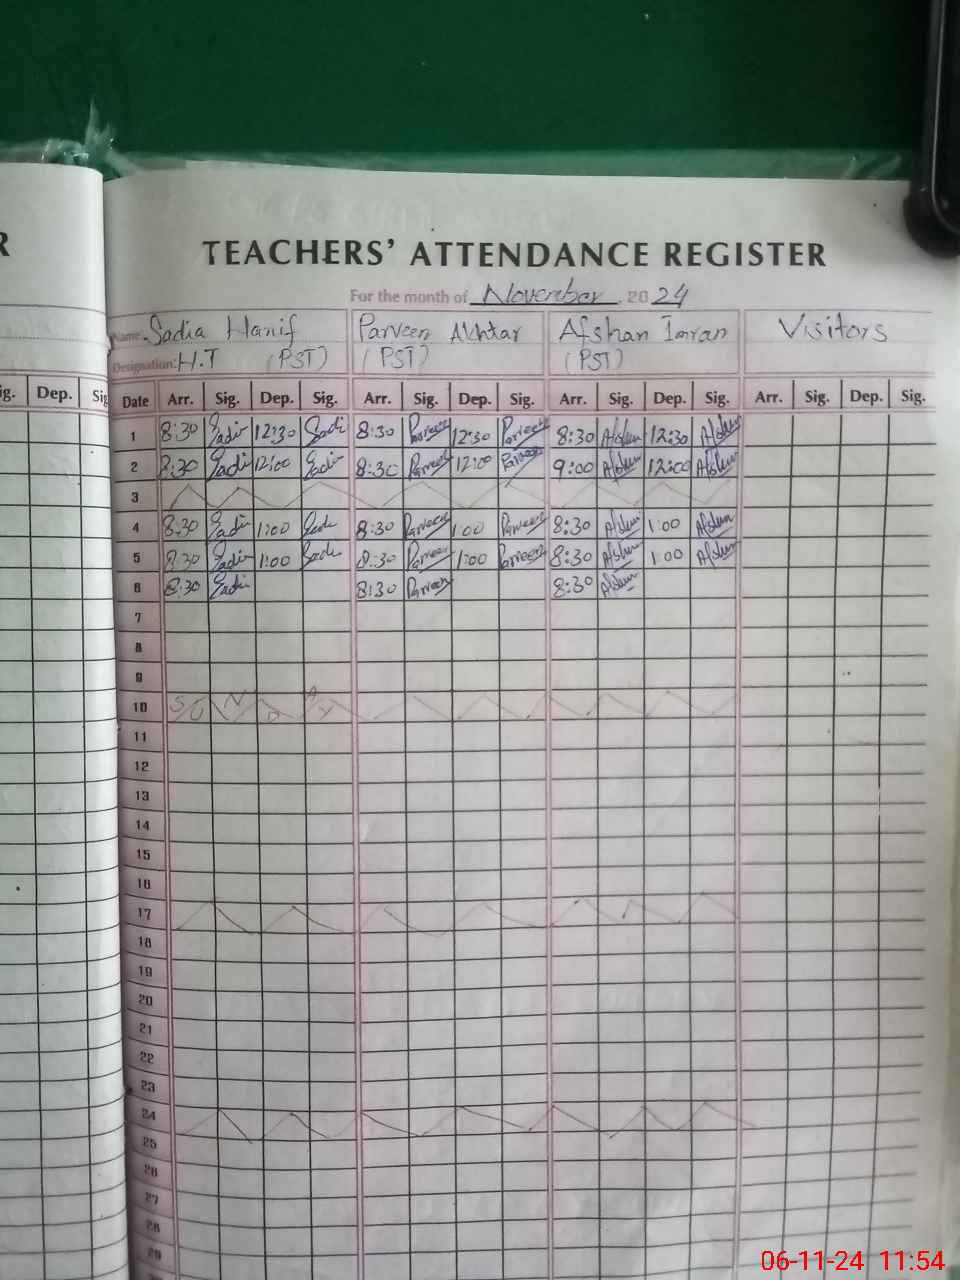 R
TEACHERS' ATTENDANCE REGISTER
For the month of November, 2024
Name: Sadia Hanif Parveen Akhtar Afshan Imran Visitors
Designation: H.T (PST) (PST) (PST)
ig. Dep. Sig
Date Arr. Sig. Dep. Sig. Arr. Sig. Dep. Sig. Arr. Sig. Dep. Sig. Arr. Sig. Dep. Sig.
1 8:30 Sadia 12:30 Sadi 8:30 Parveen 12:30 Parveen 8:30 Afshan 12:30 Afshan
2 8:30 Sadia 12:00 Sadia 8:30 Parveen 12:00 Parveen 9:00 Afshan 12:00 Afshan
3
4 8:30 Sadi 1:00 Sadi 8:30 Parveen 1:00 Parveen 8:30 Afshan 1:00 Afshan
5 8:30 Sadia 1:00 Sadi 8:30 Parveen 1:00 Parveen 8:30 Afshan 1:00 Afshan
6 8:30 Sadi 8:30 Parveen 8:30 Afshan
7
8
9
10 SUNDAY
11
12
13
14
15
16
17
18
19
20
21
22
23
24
25
26
27
28
29
06-11-24 11:54